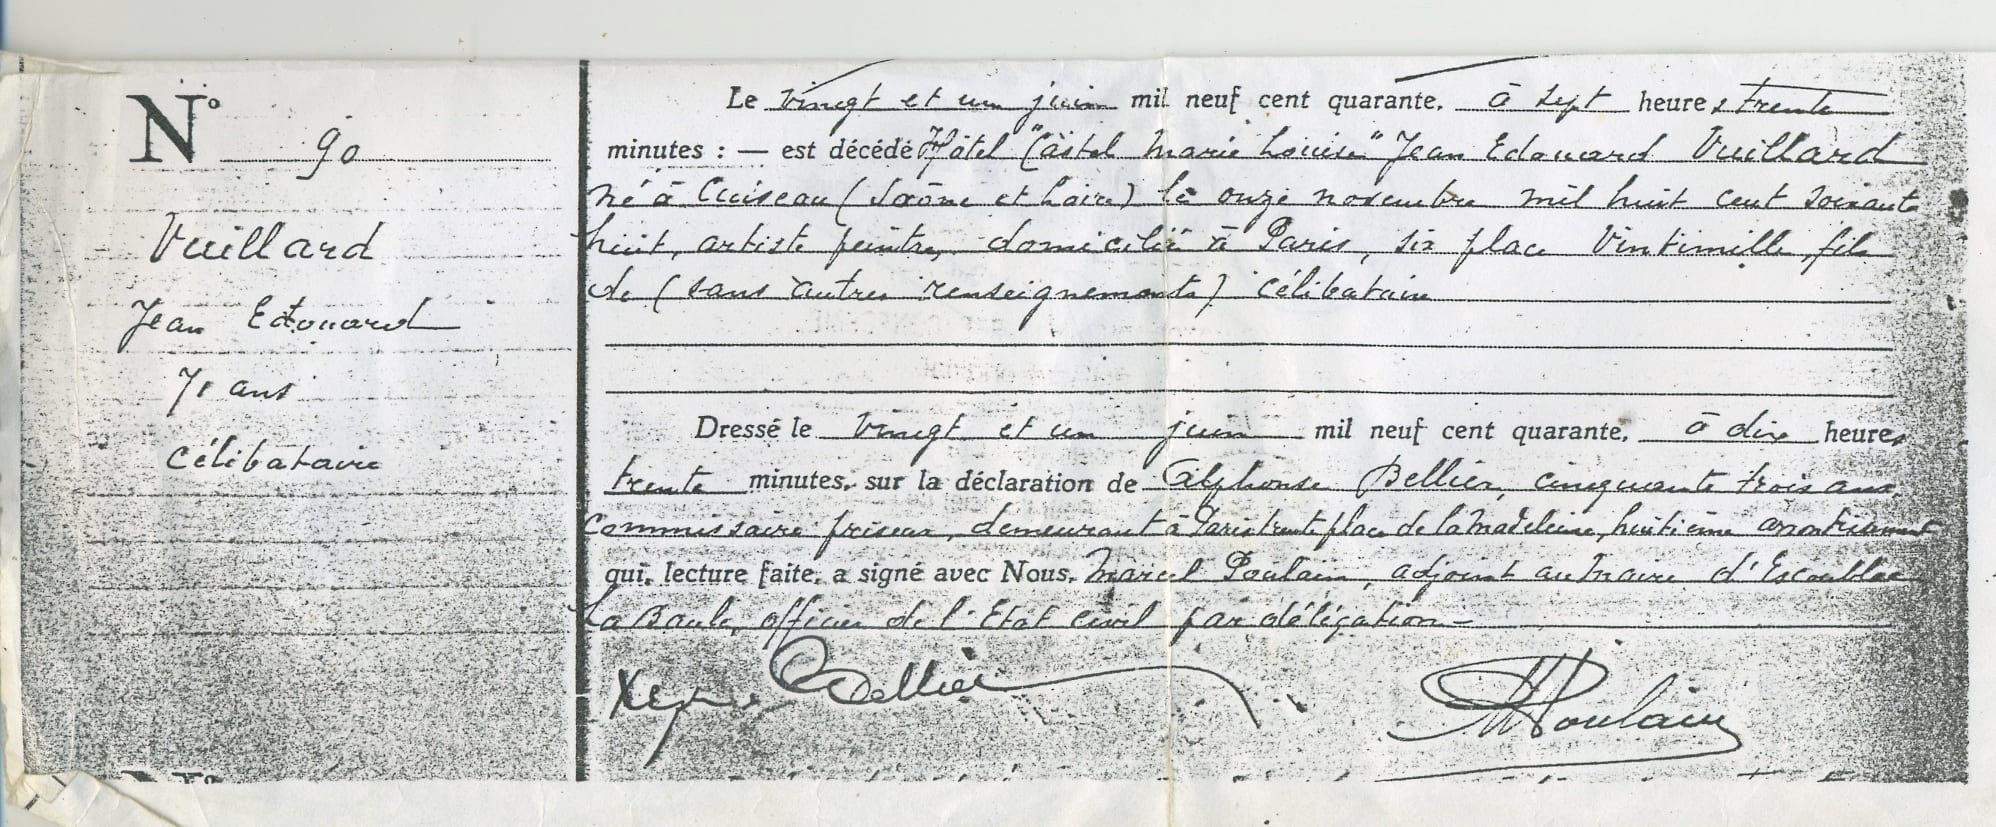 N° 90
Vuillard
Jean Edouard
71 ans
célibataire
Le vingt et un juin mil neuf cent quarante, à sept heures trente
minutes : — est décédé Hôtel "Castel Marie Louise" Jean Edouard Vuillard
né à Cuiseau (Saône et Loire) le onze novembre mil huit cent soixante
huit, artiste peintre, domicilié à Paris, six place Vintimille, fils
de (sans autres renseignements) célibataire
Dressé le vingt et un juin mil neuf cent quarante, à dix heures
trente minutes, sur la déclaration de Alphonse Bellier, cinquante trois ans,
commissaire priseur, demeurant à Paris trente place de la Madeleine, huitième arrondissement
qui, lecture faite, a signé avec Nous, Marcel Poulain, adjoint au Maire d'Escoublac
La Baule, officier de l'Etat civil par délégation -
Bellier
MPoulain